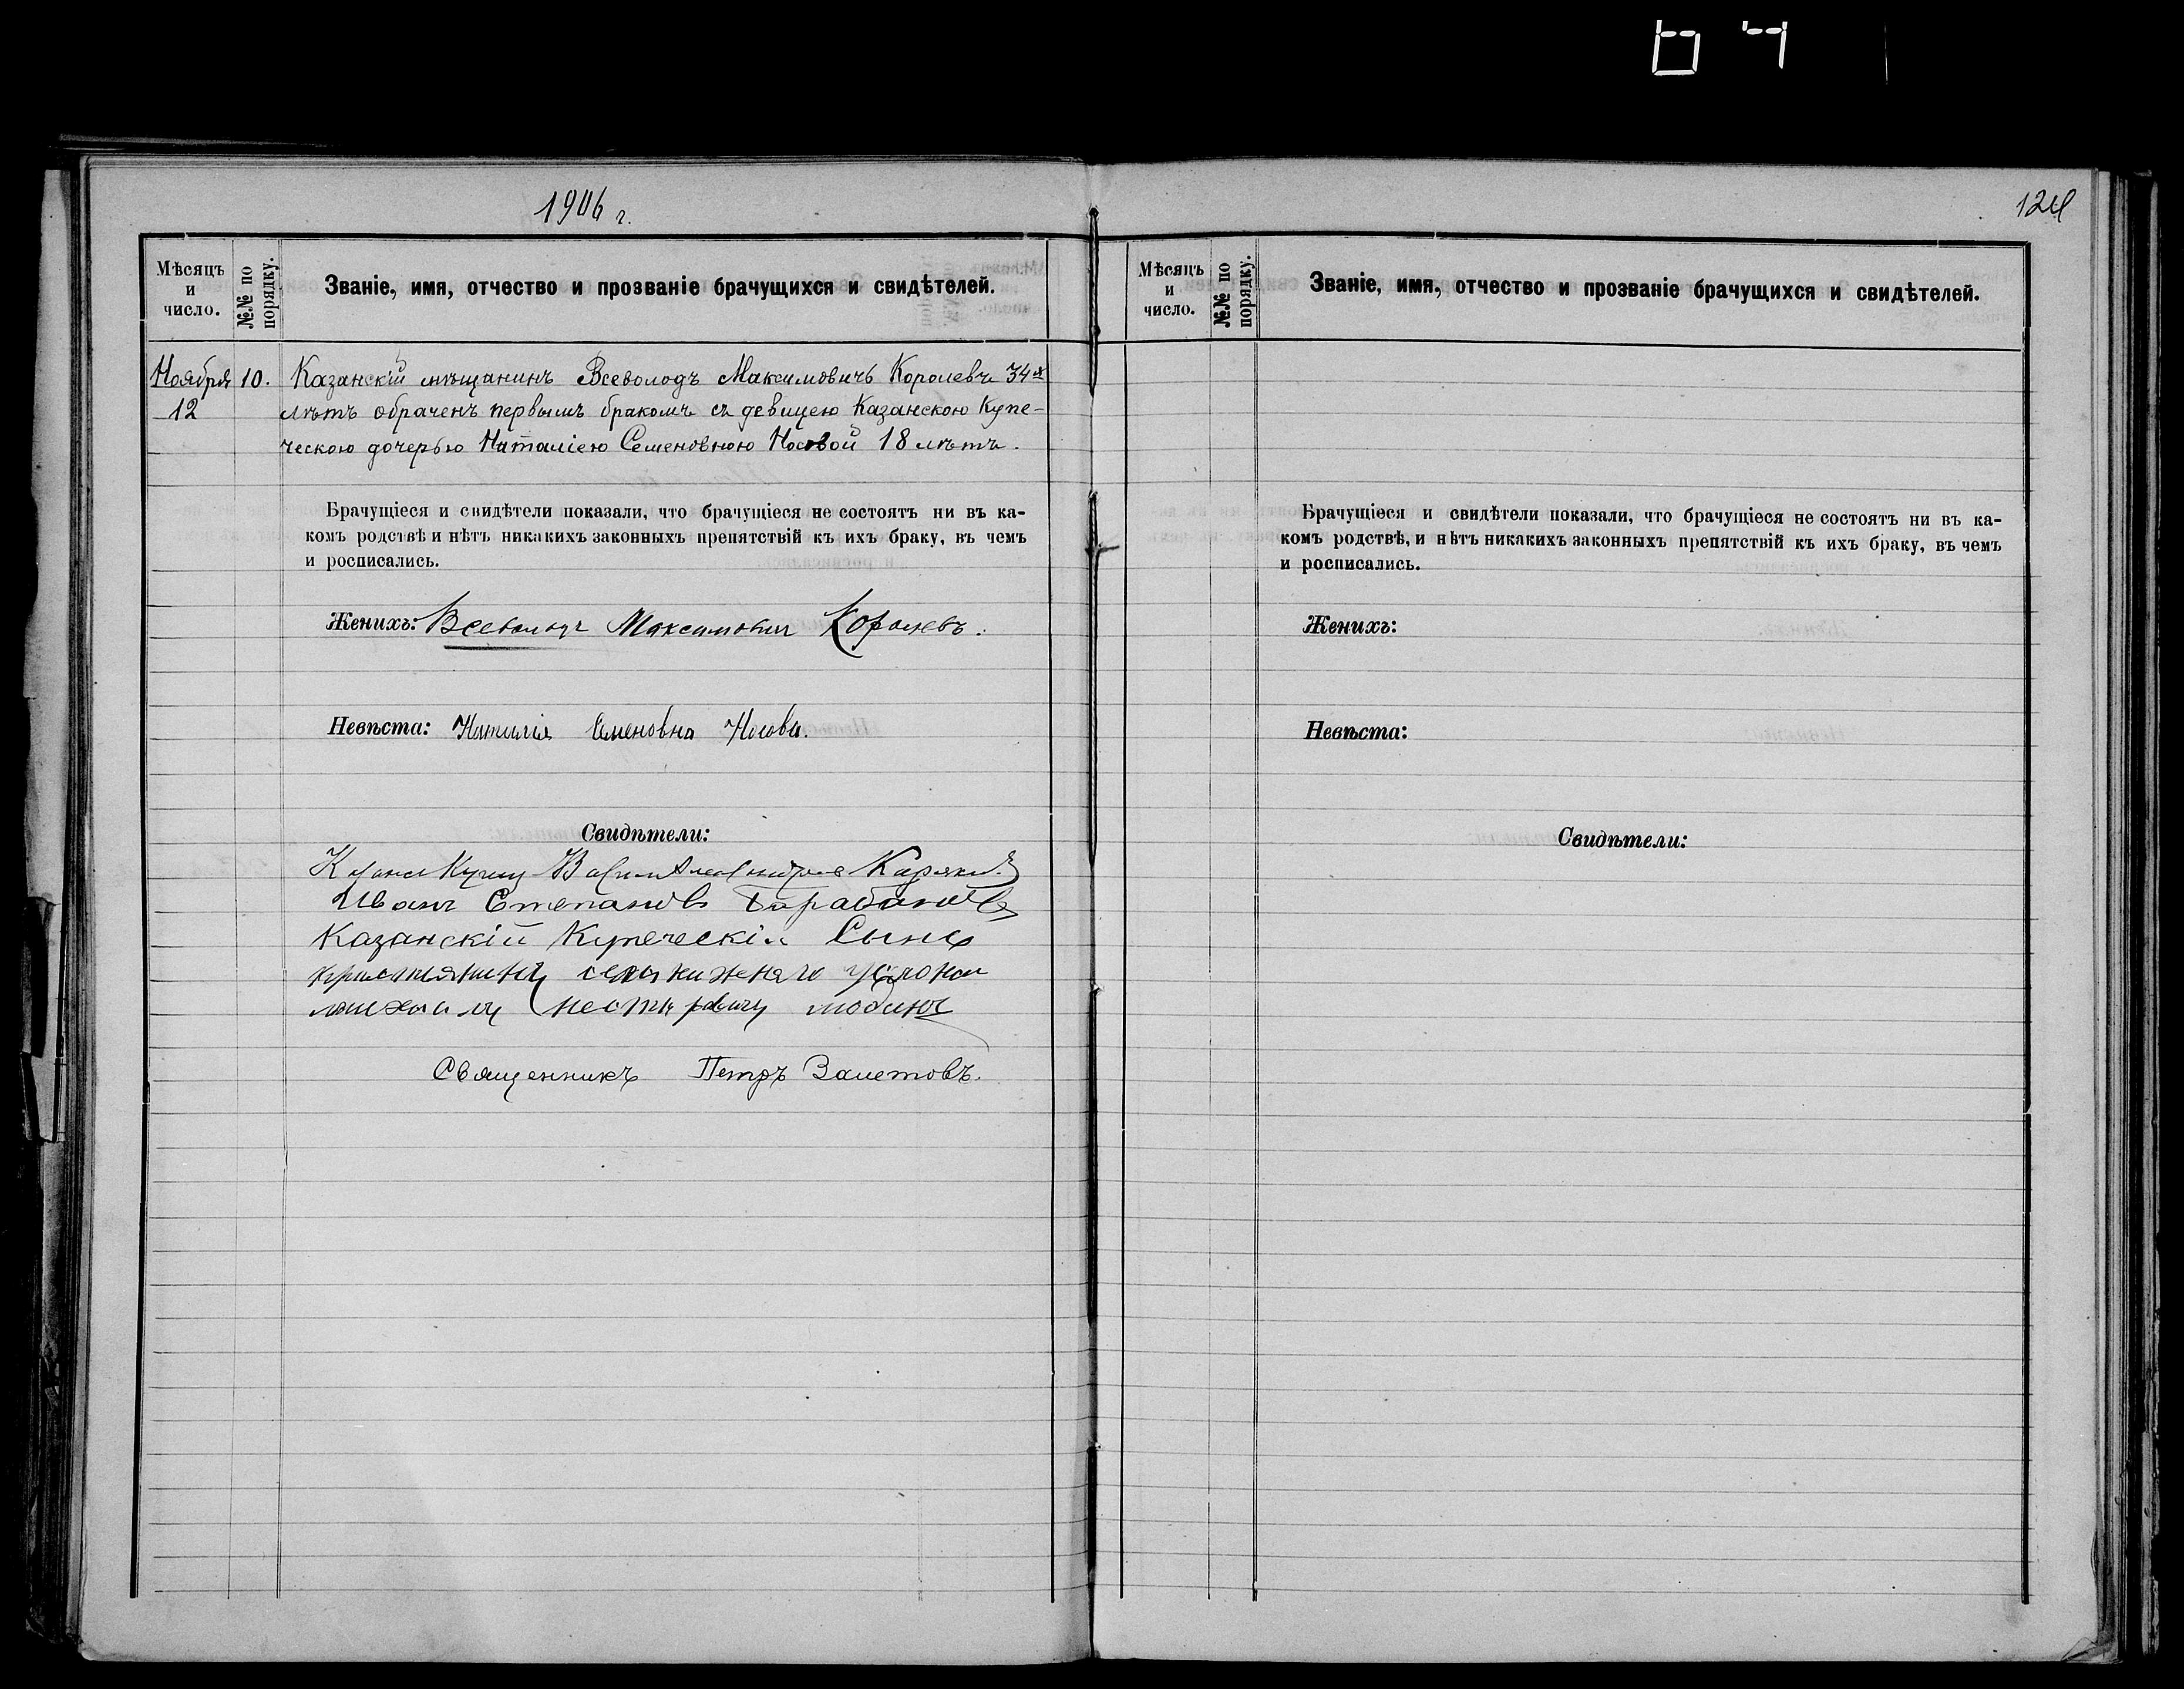 1906 г.
124
Мѣсяцъ и число.
№№ по порядку.
Званіе, имя, отчество и прозваніе брачущихся и свидѣтелей.
Ноября 10. Казанскій мѣщанинъ Всеволодъ Максимовичъ Королевъ 34х
12 лѣтъ обраченъ первымъ бракомъ съ девицею Казанскою Купе-
ческою дочерью Наталіею Семеновною Носовой 18 лѣтъ.
Брачущіеся и свидѣтели показали, что брачущіеся не состоятъ ни въ ка-
комъ родствѣ и нѣтъ никакихъ законныхъ препятствій къ ихъ браку, въ чемъ
и росписались.
Женихъ: Всеволодъ Максимовичъ Королевъ.
Невѣста: Наталія Семеновна Носова.
Свидѣтели:
Иванъ Степановъ Барабановъ
Казанскій Купеческій Сынъ
Священникъ Петръ Залетовъ.
Мѣсяцъ и число.
№№ по порядку.
Званіе, имя, отчество и прозваніе брачущихся и свидѣтелей.
Брачущіеся и свидѣтели показали, что брачущіеся не состоятъ ни въ ка-
комъ родствѣ, и нѣтъ никакихъ законныхъ препятствій къ ихъ браку, въ чемъ
и росписались.
Женихъ:
Невѣста:
Свидѣтели: